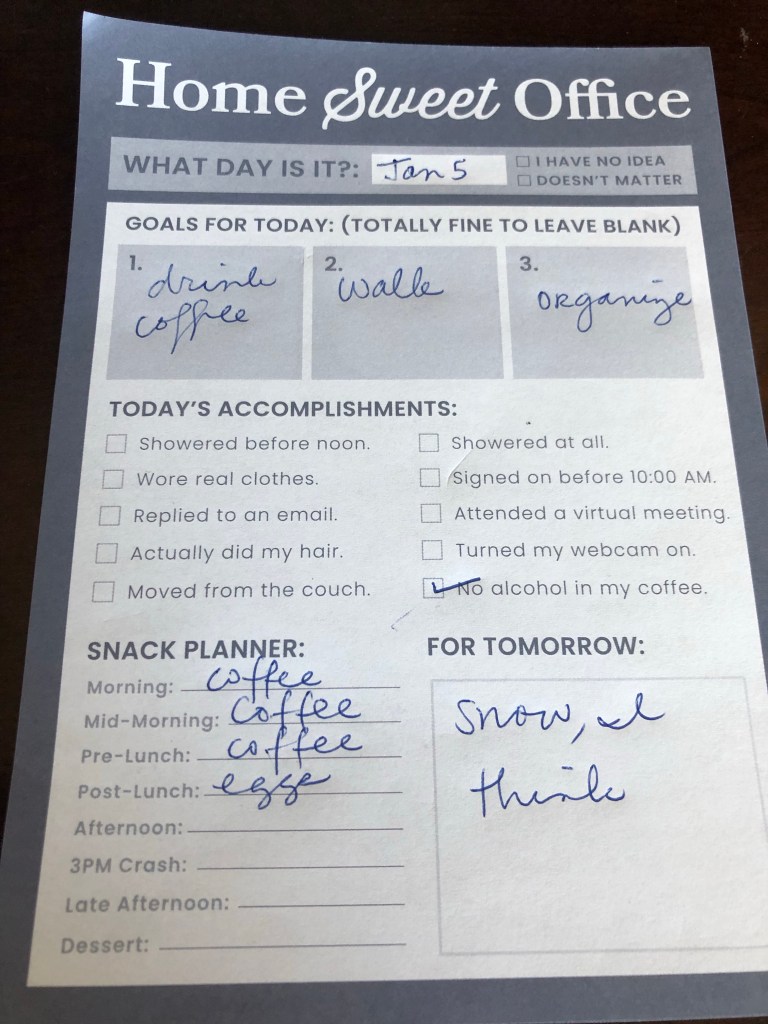 Home Sweet Office
WHAT DAY IS IT?: Jan 5
I HAVE NO IDEA
DOESN'T MATTER
GOALS FOR TODAY: (TOTALLY FINE TO LEAVE BLANK)
1. drink
coffee
2. walk
3. organize
TODAY'S ACCOMPLISHMENTS:
Showered before noon.
Wore real clothes.
Replied to an email.
Actually did my hair.
Moved from the couch.
Showered at all.
Signed on before 10:00 AM.
Attended a virtual meeting.
Turned my webcam on.
No alcohol in my coffee.
SNACK PLANNER:
Morning: coffee
Mid-Morning: coffee
Pre-Lunch: coffee
Post-Lunch: eggs
Afternoon:
3PM Crash:
Late Afternoon:
Dessert:
FOR TOMORROW:
Snow, I
think